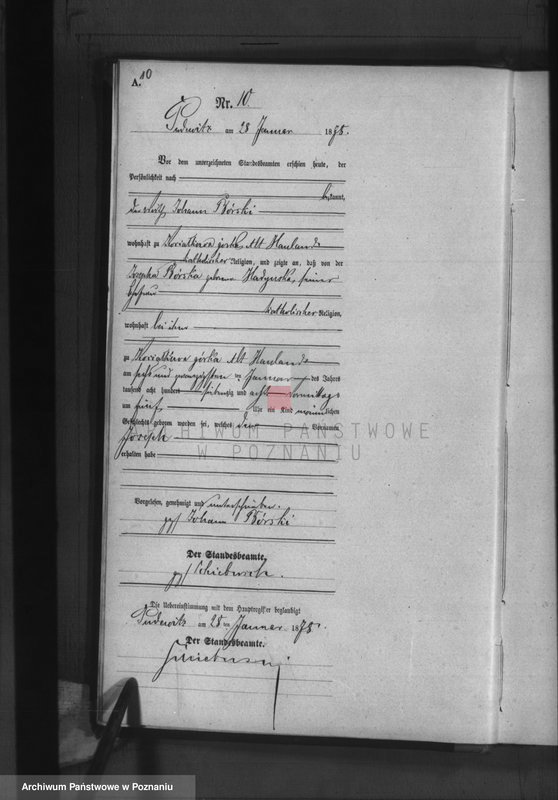 A. 10
Nr. 10.
Pudewitz am 28 Januar 1878.
Vor dem unterzeichneten Standesbeamten erschien heute, der
Persönlichkeit nach
bekannt,
der Johann Górski
wohnhaft zu górka Alt Hauland
katholischer Religion, und zeigte an, daß von der
Górska geborene seiner
Ehefrau
katholischer Religion,
wohnhaft bei ihm
zu górka Alt Hauland
am sechs und zwanzigsten ten Januar des Jahres
tausend acht hundert siebenzig und acht Vormittags
um fünf Uhr ein Kind männlichen
Geschlechts geboren worden sei, welches den Vornamen
Joseph
erhalten habe
Vorgelesen, genehmigt und unterschrieben.
gez/ Johann Górski
Der Standesbeamte.
gez/
Die Uebereinstimmung mit dem Hauptregister beglaubigt
Pudewitz am 28 ten Januar 1878.
Der Standesbeamte.
ARCHIWUM PAŃSTWOWE
W POZNANIU
Archiwum Państwowe w Poznaniu